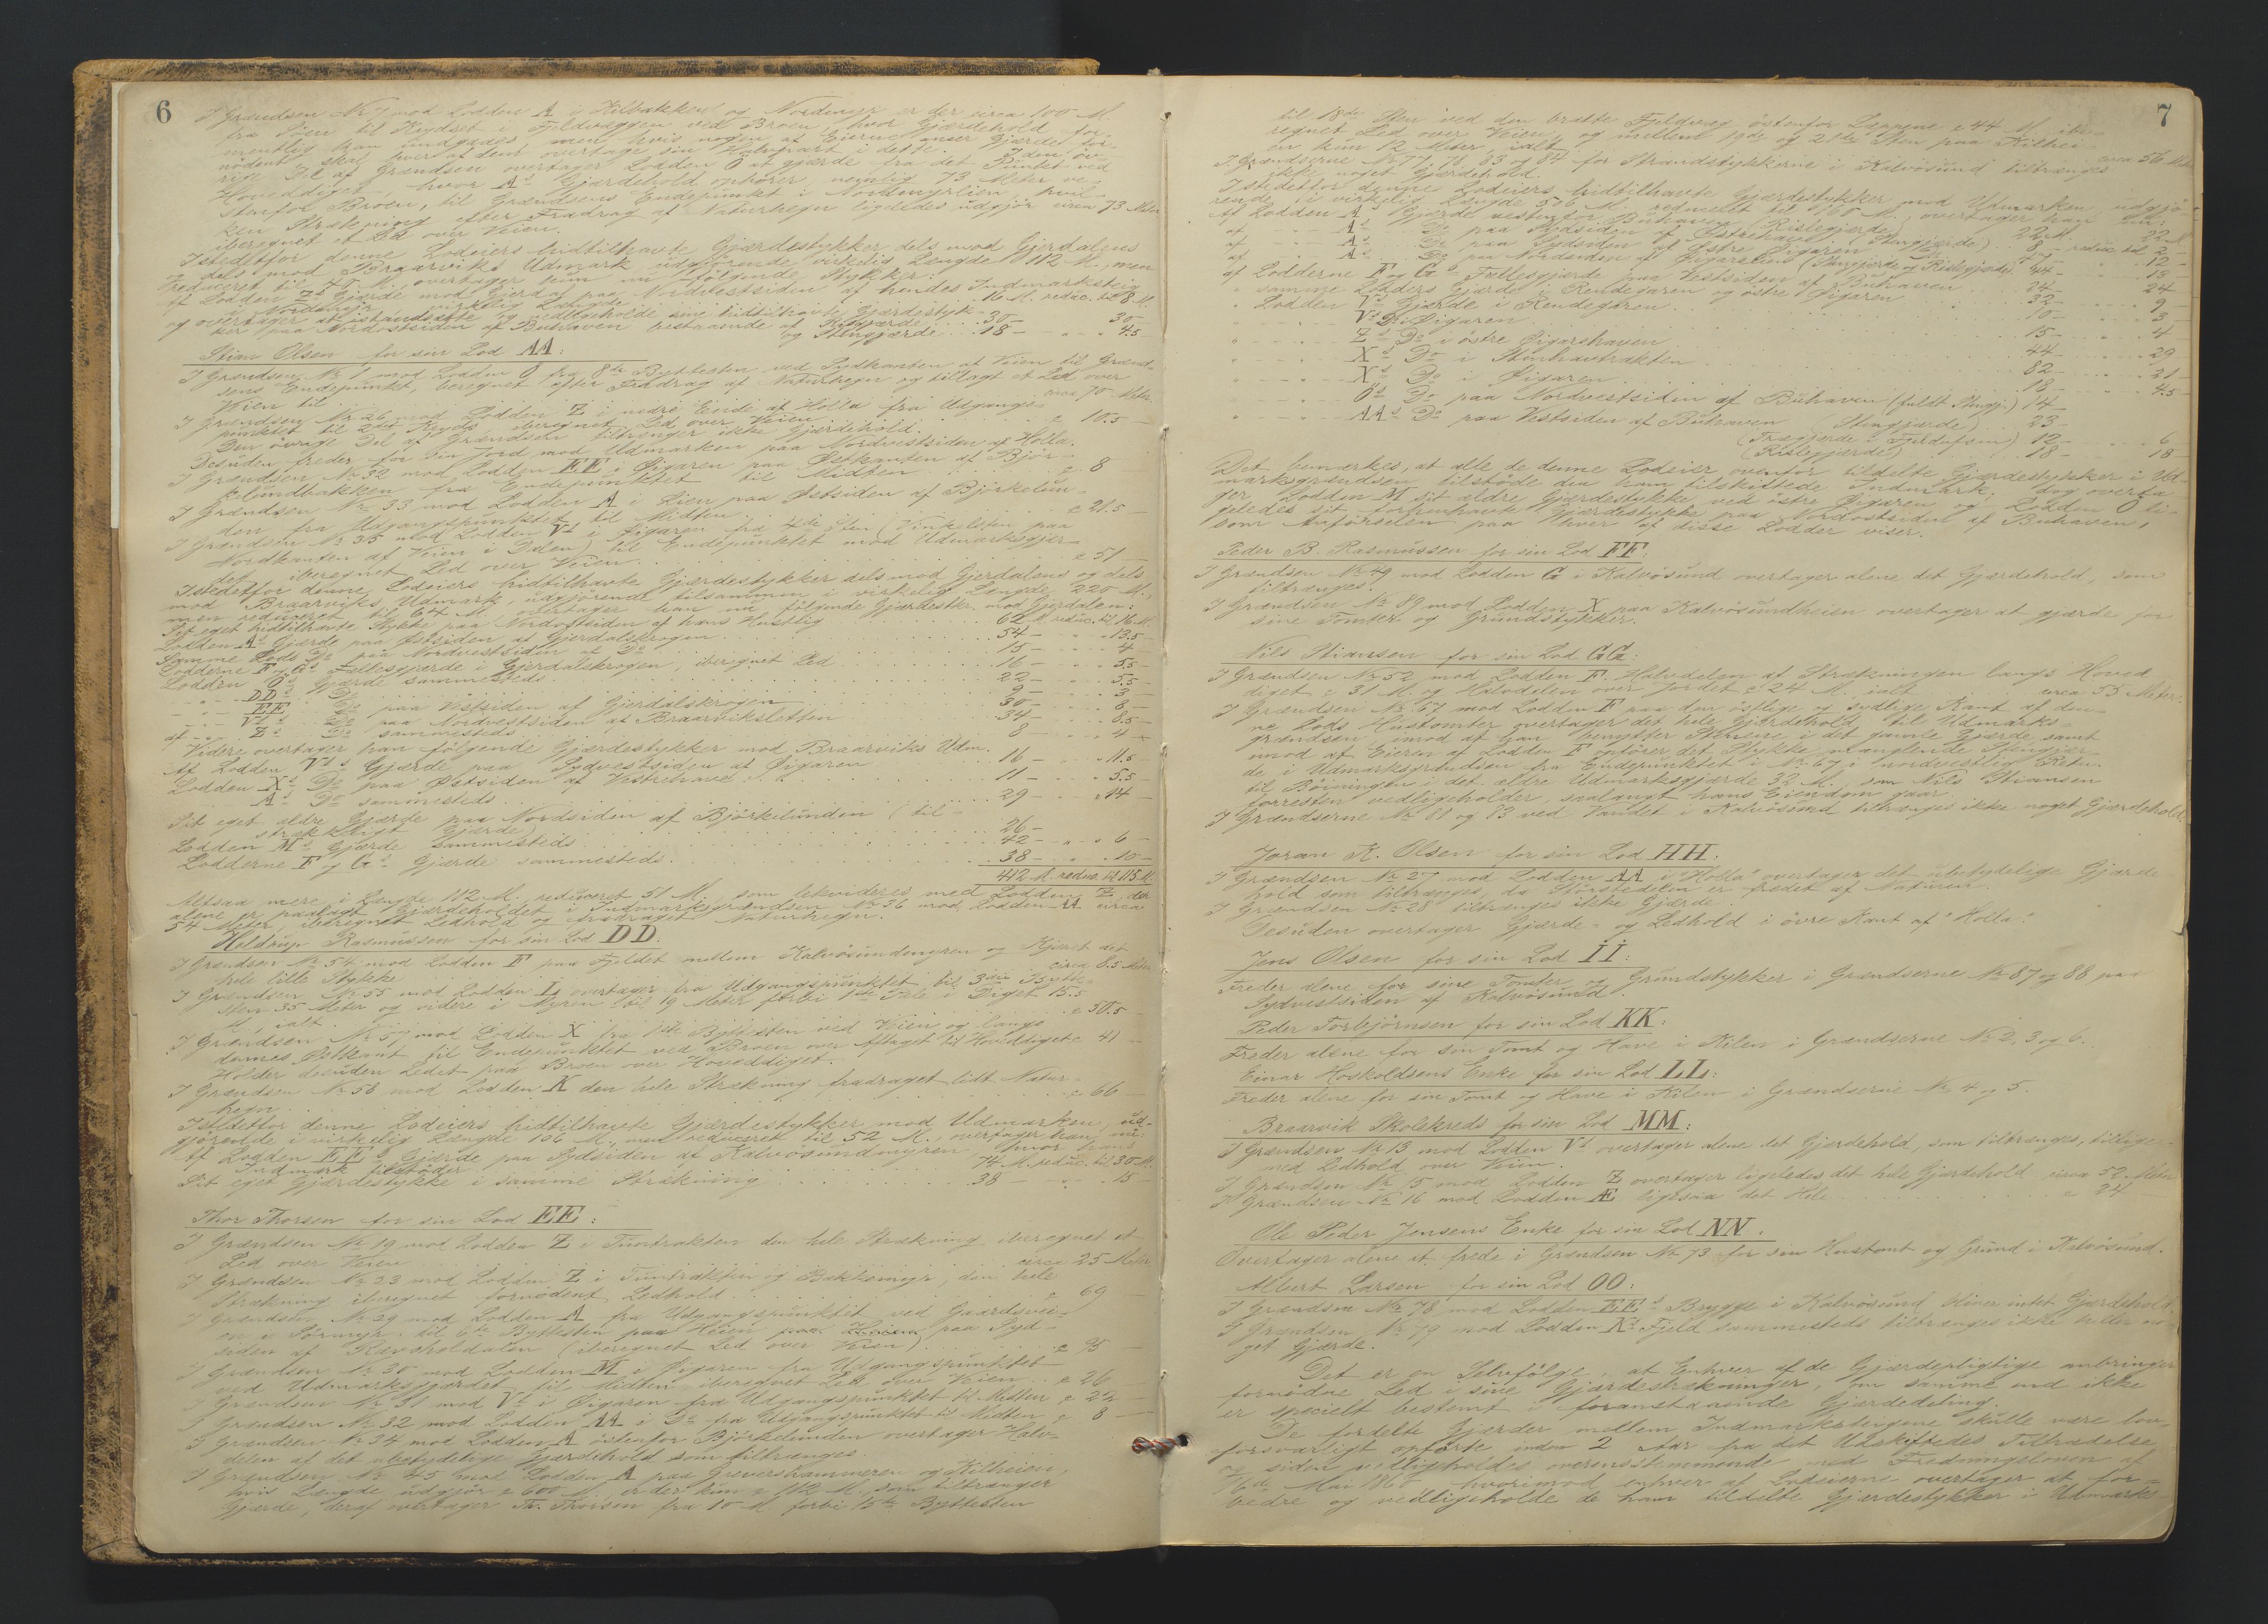 6
I Grændsen No 7 mod Lodden A i Kilbakken og Nordmyr er der circa 100 M.
fra Söen til Krydset i Fjeldvæggen ved Broen, hvor Gjærdehold for-
mentlig kan undgaaes men hvis nogen af Eierne önsker Gjærde for-
nödent, skal hver af dem overtage sin Halvpart i dette. I den öv-
rige Del af Grændsen overtager Lodden Ö at gjærde fra det Punkt ved
Hoveddiget, hvor A's Gjærdehold ophører, nemlig 73 Meter ve-
stenfor Broen, til Grændsens Endepunkt i Nordmyrlien hvil-
ken Strækning efter Fradrag af Naturhegn ligeledes udgjör circa 73 Meter
iberegnet et Led over Veien.
Istedetfor denne Lodeiers hidtilhavte Gjærdestykker dels mod Gjerdalens
og dels mod Braarviks Udmark udgjörende virkelig Længde 112 M., men
reduceret til M. overtager hun nu følgende Stykker:
Af Lodden Z's Gjærde mod Gjerdal paa Nordvestsiden af hendes Indmarksteig
i Nordmyr, virkelig Længde 16 M. reduc. til 8 M.
og overtager at istandsætte og vedligeholde sine hidtilhavte Gjærdestyk-
ker paa Nordostsiden af Buhaven bestaaende af 30 — 30 —
og Stengjærde 18 — " " 4.5 —
Stian Olsen for sin Lod AA:
I Grændsen No 1 mod Lodden Ö fra 8de Byttesten ved Sydkanten af Veien til Grænd-
sens Endepunkt, beregnet efter Fradrag af Naturhegn og tillagt et Led over
Veien til circa 70 Meter
I Grændsen No 26 mod Lodden Z i nedre Ende af Holla fra Udgangs-
punktet til 2det Kryds iberegnet Led over Veien c 10.5 —
Den övrige Del af Grændsen tiltrænger ikke Gjærdehold.
Desuden freder for sin Jord mod Udmarken paa Nordvestsiden af Holla.
I Grændsen No 32 mod Lodden EE i Øigaren paa Østkanten af Björ-
kelundbakken fra Endepunktet til Midten c 8 —
I Grændsen No 33 mod Lodden A i Lien paa Østsiden af Björkelun-
den fra Udgangspunktet til Midten c 21.5 —
I Grændsen No 35 mod Lodden Vs i Øigaren fra 4de Sten (Vinkelsten paa
Nordkanten af Veien i Dalen) til Endepunktet mod Udmarksgjær-
det iberegnet Led over Veien c 51 —
Istedetfor denne Lodeiers hidtilhavte Gjærdestykker dels mod Gjerdalens og dels
mod Braarviks Udmark, udgjörende tilsammen i virkelig Længde 220 M.,
men reduceret til 64 M. overtager han nu følgende Gjærdestkr. mod Gjerdalen:
Sit eget hidtilhavte Stykke paa Nordostsiden af hans Hustlig 62 M. reduc. til 16 M.
Lodden A's Gjærde paa Østsiden af Gjerdalskrogen 54 — " " 13.5 —
Samme Lods Do paa Nordvestsiden af Do 15 — " " 4 —
Lodderne F og G's Fællesgjærde i Gjerdalskrogen, iberegnet Led 16 — " " 5.5 —
Lodden Ö's Gjærde sammesteds 22 — " " 5.5 —
— " — DD's Do 9 — " " 3 —
— " — EE's Do paa Vestsiden af Gjerdalskrogen 30 — " " 8 —
— " — Vs's Do paa Nordvestsiden af Braarviksletten 34 — " " 8.5 —
af — " — Z's Do sammesteds 8 — " " 4 —
Videre overtager han følgende Gjærdestykker mod Braarviks Udm.
Af Lodden Vs's Gjærde paa Sydvestsiden af Øigaren 16 — " " 11.5 —
Lodden X's Do paa Østsiden af Vestrehave 11 — " " 5.5 —
A's Do sammesteds 29 — " " 14 —
Sit eget ældre Gjærde paa Nordsiden af Björkelunden (til-
strækkeligt Gjærde) 26 —
Lodden M's Gjærde sammesteds 42 — " " 6 —
Lodderne F og G's Gjærde sammesteds 38 — " " 10 —
412 M. reduc. til 115 M.
Altsaa mere i Længde 112 M. reduceret 51 M., som likvideres med Lodden Z, der
alene er paalagt Gjærdeholdet i Indmarksgrændsen No 26 mod Lodden AA circa
54 Meter, iberegnet Ledhold og ifradraget Naturhegn.
Holdrup Rasmussen for sin Lod DD:
I Grændsen No 54 mod Lodden F paa Fjeldet mellem Kalvösundmyren og Kjæret det
hele lille Stykke circa 8.5 Meter
I Grændsen No 55 mod Lodden L overtager fra Udgangspunktet til 3die Bytte-
sten 35 Meter og videre i Myren til 19 Meter forbi 1ste Pæle i Diget 15.5
M., ialt c 50.5 —
I Grændsen No 57 mod Lodden X fra 1ste Byttesten ved Veien og langs
dennes Østkant til Endepunktet ved Broen over Aflaget til Hoveddiget c 41 —
Holder desuden Ledet paa Broen over Hoveddiget.
I Grændsen No 58 mod Lodden K den hele Strækning fradraget lidt Natur-
hegn c 66 —
Istedetfor denne Lodeiers hidtilhavte Gjærdestykker mod Udmarken, ud-
gjörende i virkelig Længde 106 M., men reduceret til 52 M., overtager han nu:
Af Lodden EE's Gjærde paa Sydsiden af Kalvösundmyren, hvor hans
Indmark tilstöder 74 M. reduc. til 30 M.
Sit eget Gjærdestykke i samme Strækning 38 — " " 15 —
Thor Thorsen for sin Lod EE:
I Grændsen No 19 mod Lodden Z i Tuntrakten den hele Strækning iberegnet et
Led over Veien circa 25 Meter
I Grændsen No 23 mod Lodden Z i Tuntrakten og Bakkemyr, den hele
Strækning iberegnet fornødent Ledhold c 69 —
I Grændsen No 29 mod Lodden A fra Udgangspunktet ved Gaardsvei-
en i Sörmyr til 6te Byttesten paa Heien paa Heien paa Syd-
siden af Ræveholdalen (iberegnet Led over Veien) c 95 —
I Grændsen No 30 mod Lodden M i Øigaren fra Udgangspunktet
ved Udmarksgjærdet til Midten iberegnet Led over Veien c 26 —
I Grændsen No 31 mod Vs i Øigaren fra Udgangspunktet til Midten c 22 —
I Grændsen No 32 mod Lodden AA i Do fra Udgangspunktet til Midten c 8 —
I Grændsen No 34 mod Lodden A istenfor Björkelunden overtager Halv-
delen af det ubetydelige Gjærdehold som tiltrænges.
I Grændsen No 45 mod Lodden A paa Grevershammeren og Kilheien,
hvis Længde udgjör c 600 M. er der kun c 112 M. som tiltrænger
Gjærde, deraf overtager Th. Thorsen fra 10 M. forbi 15de Byttesten
7
til 18de Sten ved den bratte Fjeldvæg östenfor Løerne c 44 M. ibe-
regnet Led over Veien, og mellem 19de og 21de Sten paa Kilhei-
en kun 12 Meter, ialt circa 56 Meter
I Grændserne No 77, 78, 83 og 84 for Strandstykkerne i Kalvösund tiltrænges
ikke noget Gjærdehold.
Istedetfor denne Lodeiers hidtilhavte Gjærdestykker mod Udmarken, udgjö-
rende i virkelig Længde 506 M. reduceret til 160 M., overtager han nu:
Af Lodden A's Gjærde vestenfor Buhaven (Rislegjærde) 22 M. 22 M.
af — " — A's Do paa Sydsiden af Østrehaven (Stengjærde) 8 — reduc. til 2 —
af — " — A's Do paa Sydsiden af Østre Øigaren Do " " 12 —
af — " — A's Do paa Nordenden af Øigarens (Stengjærde og Rislegjærde) 44 — " " 18 —
af Lodderne F og G's Fællesgjærde paa Vestsiden af Buhaven 24 — 24 —
" samme Lodders Gjærde i Rendegaren og östre Øigaren 32 — " " 9 —
" Lodden Vs's Gjærde i Rendegaren 10 — " " 3 —
" — " — Vs's Do i Øigaren 15 — " " 4 —
" — " — Z's Do i östre Øigarehaven 44 — " " 29 —
" — " — X's Do i Stenhavtrakten 82 — " " 21 —
" — " — X's Do i Øigaren 18 — " " 4.5 —
" — " — Ö's Do paa Nordvestsiden af Buhaven (fuldt Stengj.) 14 —
" — " — AA's Do paa Vestsiden af Buhaven (Stengjærde) 23 —
(Trægjærde i Fjeldufsen) 12 — " " 6 —
(Rislegjærde) 18 — 18 —
Det bemærkes, at alle de denne Lodeier ovenfor tildelte Gjærdestykker i Ud-
marksgrændsen tilstöde den ham tilskiftede Indmark, dog overta-
ger Lodden M sit ældre Gjærdestykke ved östre Øigaren og Lodden Ö li-
geledes sit forhenhavte Gjærdestykke paa Nordostsiden af Buhaven,
som Anförselen paa hver af disse Lodder viser.
Peder B. Rasmussen for sin Lod FF:
I Grændsen No 49 mod Lodden G i Kalvösund overtager alene det Gjærdehold, som
tiltrænges.
I Grændsen No 89 mod Lodden X paa Kalvösundheien overtager at gjærde for
sine Tomter og Grundstykker.
Nils Stiansen for sin Lod GG:
I Grændsen No 52 mod Lodden F. Halvdelen af Strækningen langs Hoved-
diget c 31 M. og Halvdelen over Jordet c 24 M. ialt circa 55 Meter.
I Grændsen No 67 mod Lodden F paa den östlige og sydlige Kant af den-
ne Lods Hustomter overtager det hele Gjærdehold til Udmarks-
grændsen imod at han benytter Stenene i det gamle Gjærde samt
mod at Eieren af Lodden F opförer det Stykke manglende Stengjær-
de i Udmarksgrændsen fra Endepunktet i No 67 i nordvestlig Retn.
til Böiningen i det ældre Udmarksgjærde 32 M. som Nils Stiansen
forresten vedligeholder, saalangt hans Eiendom gaar.
I Grændserne No 81 og 83 ved Vandet i Kalvösund tiltrænges ikke noget Gjærdehold.
Joran K. Olsen for sin Lod HH:
I Grændsen No 27 mod Lodden AA i "Holla" overtager det ubetydelige Gjærde-
hold som tiltrænges, da Störstedelen er fredet af Naturen.
I Grændsen No 28 tiltrænges ikke Gjærde.
Desuden overtager Gjærde- og Ledhold i övre Kant af "Holla".
Jens Olsen for sin Lod II:
Freder alene for sine Tomter og Grundstykker i Grændserne No 87 og 88 paa
Sydvestsiden af Kalvösund.
Peder Torbjörnsen for sin Lod KK:
Freder alene for sin Tomt og Have i Kilen i Grændserne No 2, 3 og 6.
Einar Hoskoldsens Enke for sin Lod LL:
Freder alene for sin Tomt og Have i Kilen i Grændserne No 4 og 5.
Braarvik Skolekreds for sin Lod MM:
I Grændsen No 13 mod Lodden Vs overtager alene det Gjærdehold, som tiltrænges, tillige-
med Ledhold over Veien.
I Grændsen No 15 mod Lodden Z overtager ligeledes det hele Gjærdehold circa 52 Meter
I Grændsen No 16 mod Lodden Æ ligesaa det Hele c 24 —
Ole Peder Jensens Enke for sin Lod NN.
Overtager alene at frede i Grændsen No 73 for sin Hustomt og Grund i Kalvösund.
Albert Larsen for sin Lod OO:
I Grændsen No 78 mod Lodden EE's Brygge i Kalvösund bliver intet Gjærdehold.
I Grændsen No 79 mod Lodden X's Fjeld sammesteds tiltrænges ikke heller no-
get Gjærde.
Det er en Selvfölge, at Enhver af de Gjærdepligtige anbringer
fornödne Led i sine Gjærdestrækninger, om samme end ikke
er specielt bestemt i foranstaaende Gjærdedeling.
De fordelte Gjærder mellem Indmarksteigene skulle være lov-
forsvarligt opförte inden 2 Aar fra det Udskiftedes Tiltrædelse
og siden vedligeholdes overensstemmende med Fredningsloven af
16de Mai 1860 hvorimod enhver af Lodeierne overtager at for-
bedre og vedligeholde de ham tildelte Gjærdestykker i Udmarks-